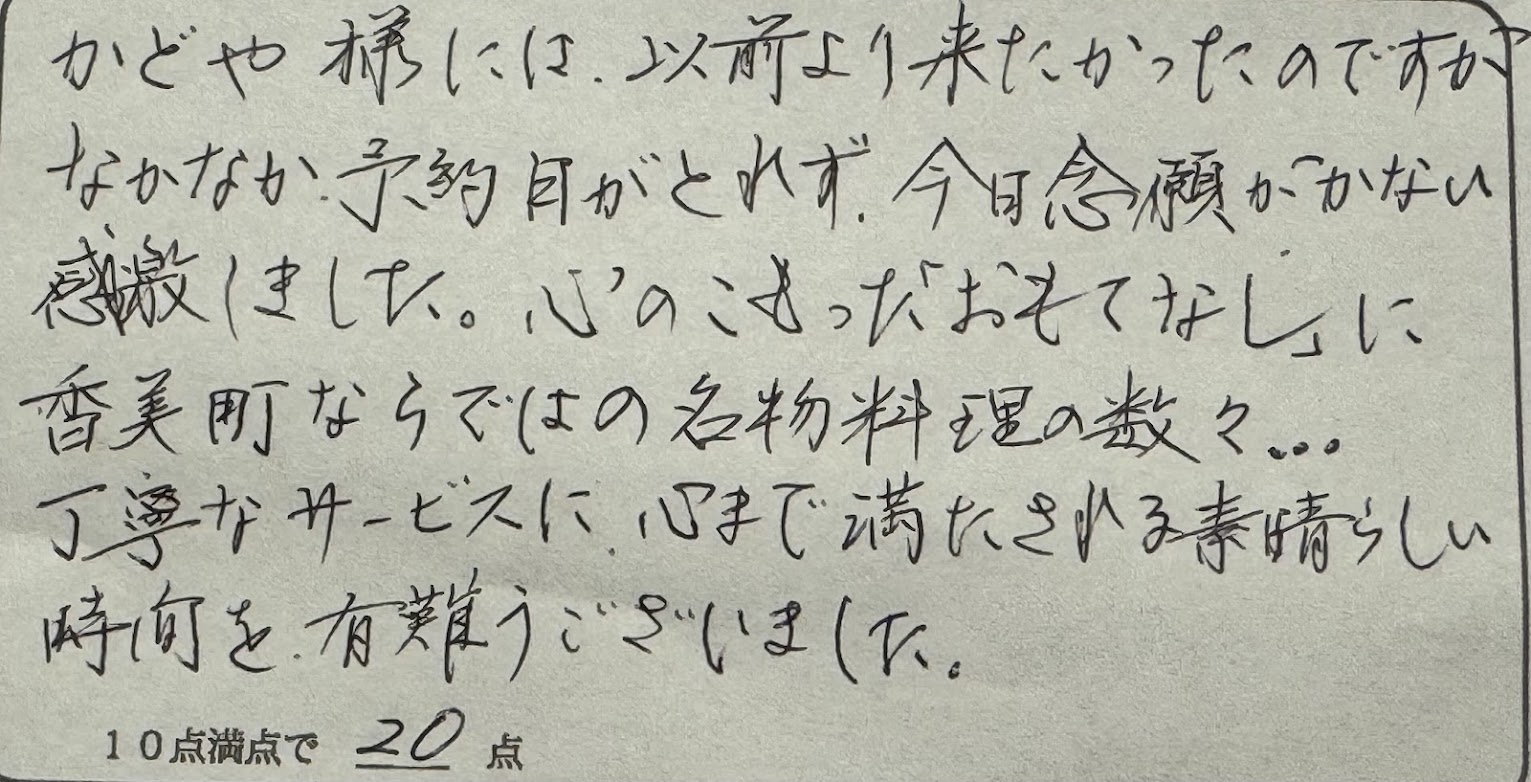 かどや様には、以前より来たかったのですが
なかなか、予約日がとれず、今日念願がかない
感激しました。心のこもった「おもてなし」に
香美町ならではの名物料理の数々...
丁寧なサービスに、心まで満たされる素晴らしい
時間を、有難うございました。
10点満点で 20 点